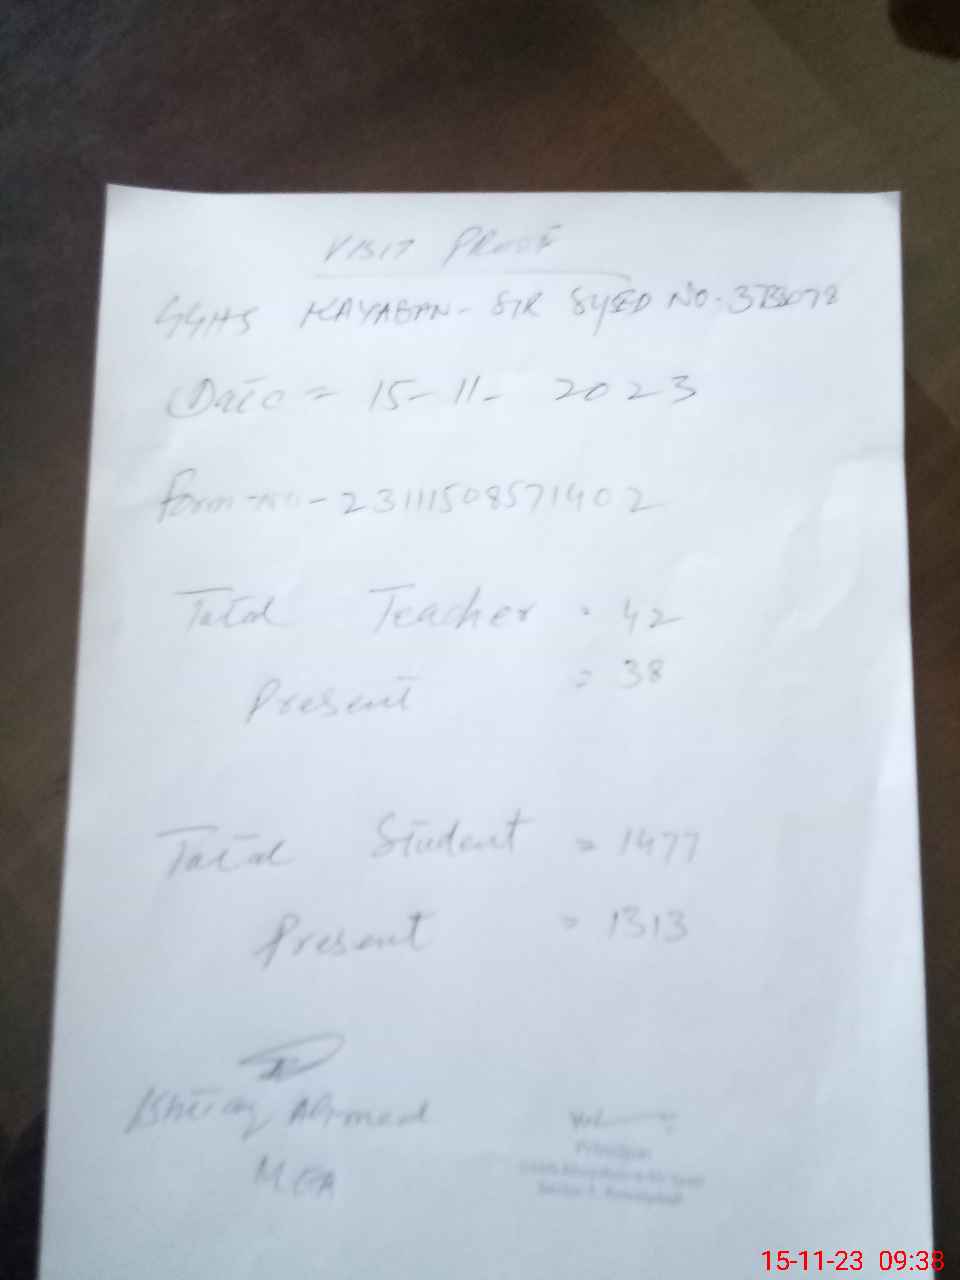 VISIT PROOF
GGHS KAYABAN - SIR SYED NO.
Date = 15-11-2023
Form-no - 23111508571402
Total Teacher = 42
Present = 38
Total Student = 1477
Present = 1313
Ahmad
MEA
Principal
15-11-23 09:38